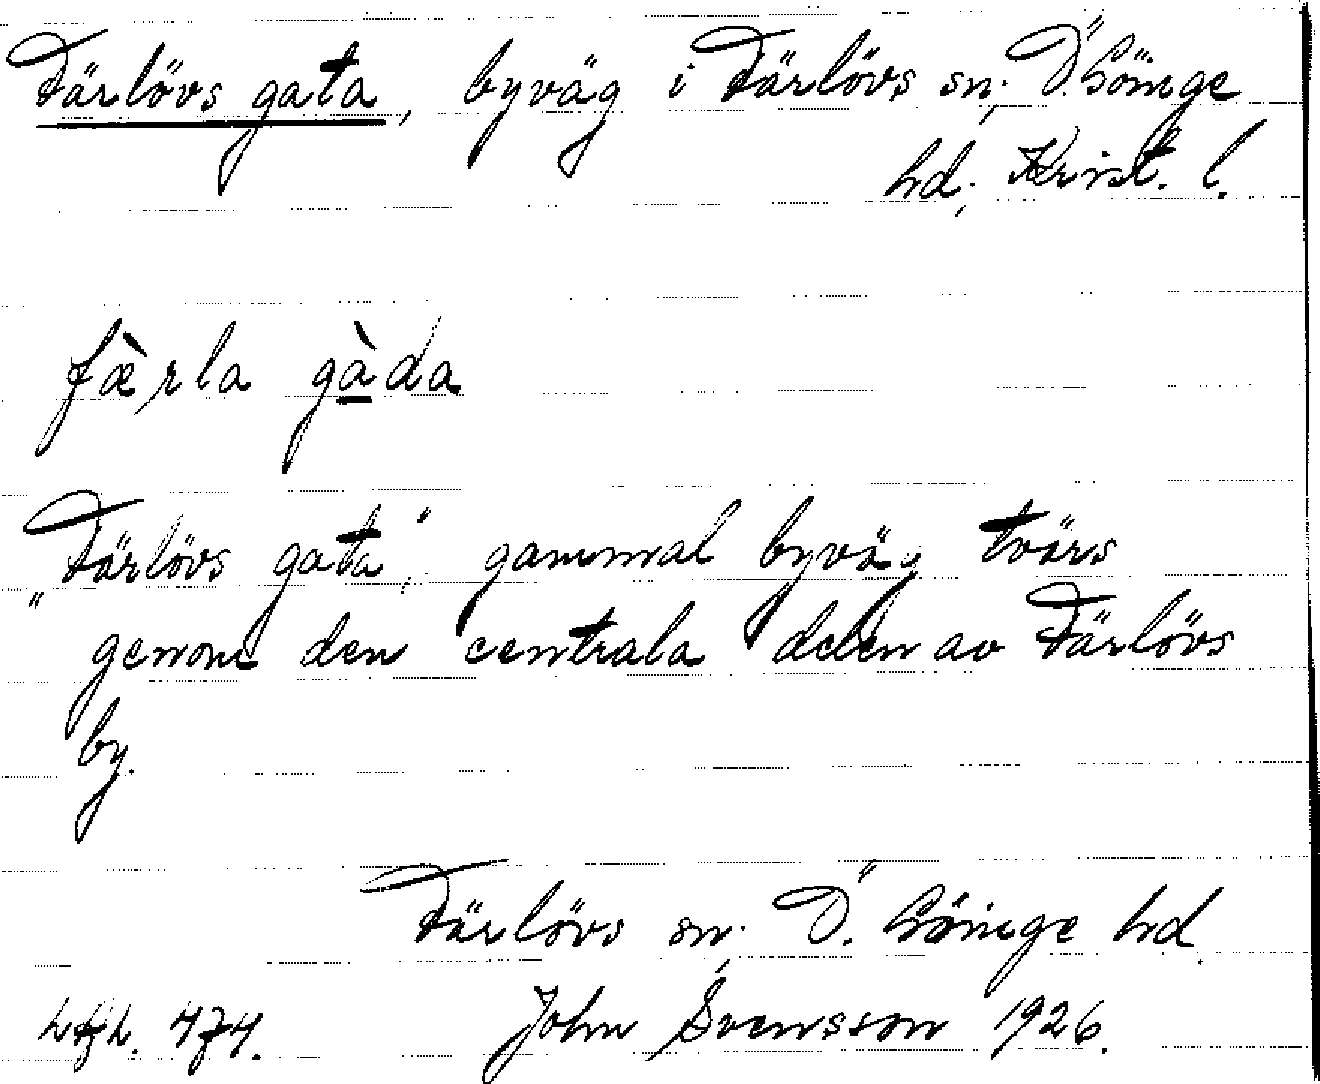 Färlövs gata, byväg i Färlövs sn, Ö. Göinge
hd, Krist. l.
fæ̀rla gà̱da
"Färlövs gata," gammal byväg tvärs
genom den centrala delen av Färlövs
by.
Färlövs sn, Ö. Göinge hd.
John Svensson 1926.